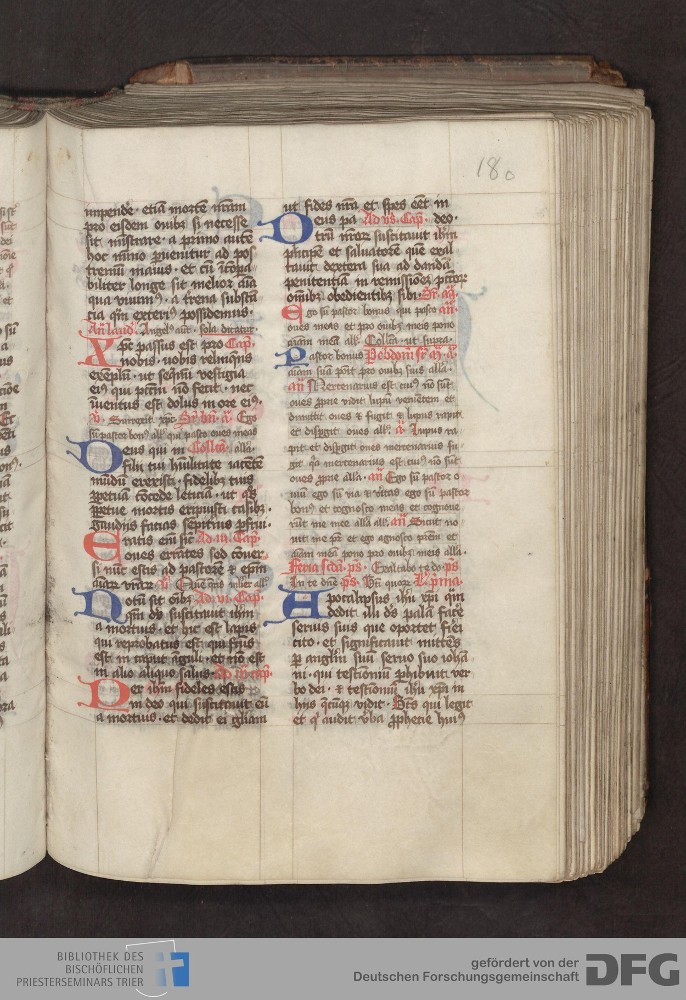 180
impende᷑ · etiā mortē nr̄am
pro eisdem ouibȝ si necesse
sit mīstrare · a primo autē
hoc mīno ꝑuenitur ad pos
tremū maius · et cū īcōpa
biliter longe sit melior aīa
qua viuimꝰ · a trena substā
cia qm̄ exteriꝰ possidemus
An̄ laudꝰ · Angelꝰ aut̄ · sola dicatur ·
Xp̄c passus est pro Cap̄ ·
nobis · uobis relinq̄ns
exēplū · ut seqm̄i vestigia
eiꝰ qui pctm̄ nō fecit · nec
īuentus est dolus in ore eiꝰ ·
Surrexit xp̄c Ego
sū pastor bonꝰ all̄ qui pasco oues meas
Deus qui in Collcā · alla ·
filii tui hūilitate iacētē
mūdū erexisti · fidelibȝ tuis
ꝑpetuā cōcede leticiā · ut q̄s
ꝑpetue mortis eripuisti casibȝ ·
gaudijs facias sēpitnis ꝑfrui ·
Eratis em̄ sic̄ Ad iii · Cap̄ ·
oues errātes sed cōuer
si nūc estis ad pastorē ⁊ ep̄m
aīarꝝ vr̄arꝝ
Notū sit oībȝ Ad vi · Cap̄ ·
qm̄ ds̄ suscitauit ihm̄
a mortuis · et hic est lapis
qui reprobatus est · qui fc̄us
est in caput āguli · et nō est
in alio aliquo salus · Ad ix cap̄ ·
Per ihm̄ fideles estis
in deo qui suscitauit eū
a mortuis · et dedit ei gl̄iam
ut fides nr̄a et spes eēt in
Deus pa Ad vs̄ · Cap̄ · deo ·
trū nr̄orꝝ suscitauit ihm̄
pncipē et saluatorē quē exal
tauit dextera sua ad dandā
penitentiā in remissioēȝ pctōrꝝ
omībȝ obedientibȝ sibi ·
Ego sū pastor bonus qui pasco an̄ ·
oues meas et pro ouibȝ meis pono
aīam meā all̄ · Collcā · ut supra ·
Pastor bonus
aīam suā pōit pro ouibȝ suis alla ·
an̄ Mercenarius est cuiꝰ nō sūt
oues ꝓprie vidit lupū venientem et
dimittit oues ⁊ fugit ⁊ lupus rapit
et disꝑgit oues all̄ · Lupus ra
pit et disꝑgit oues mercenarius fu
git q̄a mercenarius est cuiꝰ nō sūt
oues ꝓprie alla · an̄ Ego sū pastor o
uiū ego sū via ⁊ vitas ego sū pastor
bonꝰ et cognosco meas et cognoue
rūt me mee alla all̄ an̄ Sicut no
uit me pr̄ et ego agnosco pr̄em et
aīam meā pono pro ouibȝ meis alla ·
Feria scd̄a · ps · Exaltabo te dō ps
In te dn̄e ps · Bt̄i quorꝝ Lc̄ pma ·
Apocalipsus ihū xp̄i qm̄
dedit illi ds̄ palā fac̄e
seruis suis que oportet fieri
cito · et significauit mittēs
ꝑ angl̄m suū seruo suo iohā
ni · qui testioniū ꝑhibuit ver
bo dei · ⁊ testioniū ihū xp̄i in
hiis q̄cūqȝ vidit · Bt̄us qui legit
et q̄ audit v̄ba ꝓphetie huiꝰ
BIBLIOTHEK DES
BISCHÖFLICHEN
PRIESTERSEMINARS TRIER
gefördert von der
Deutschen Forschungsgemeinschaft
DFG